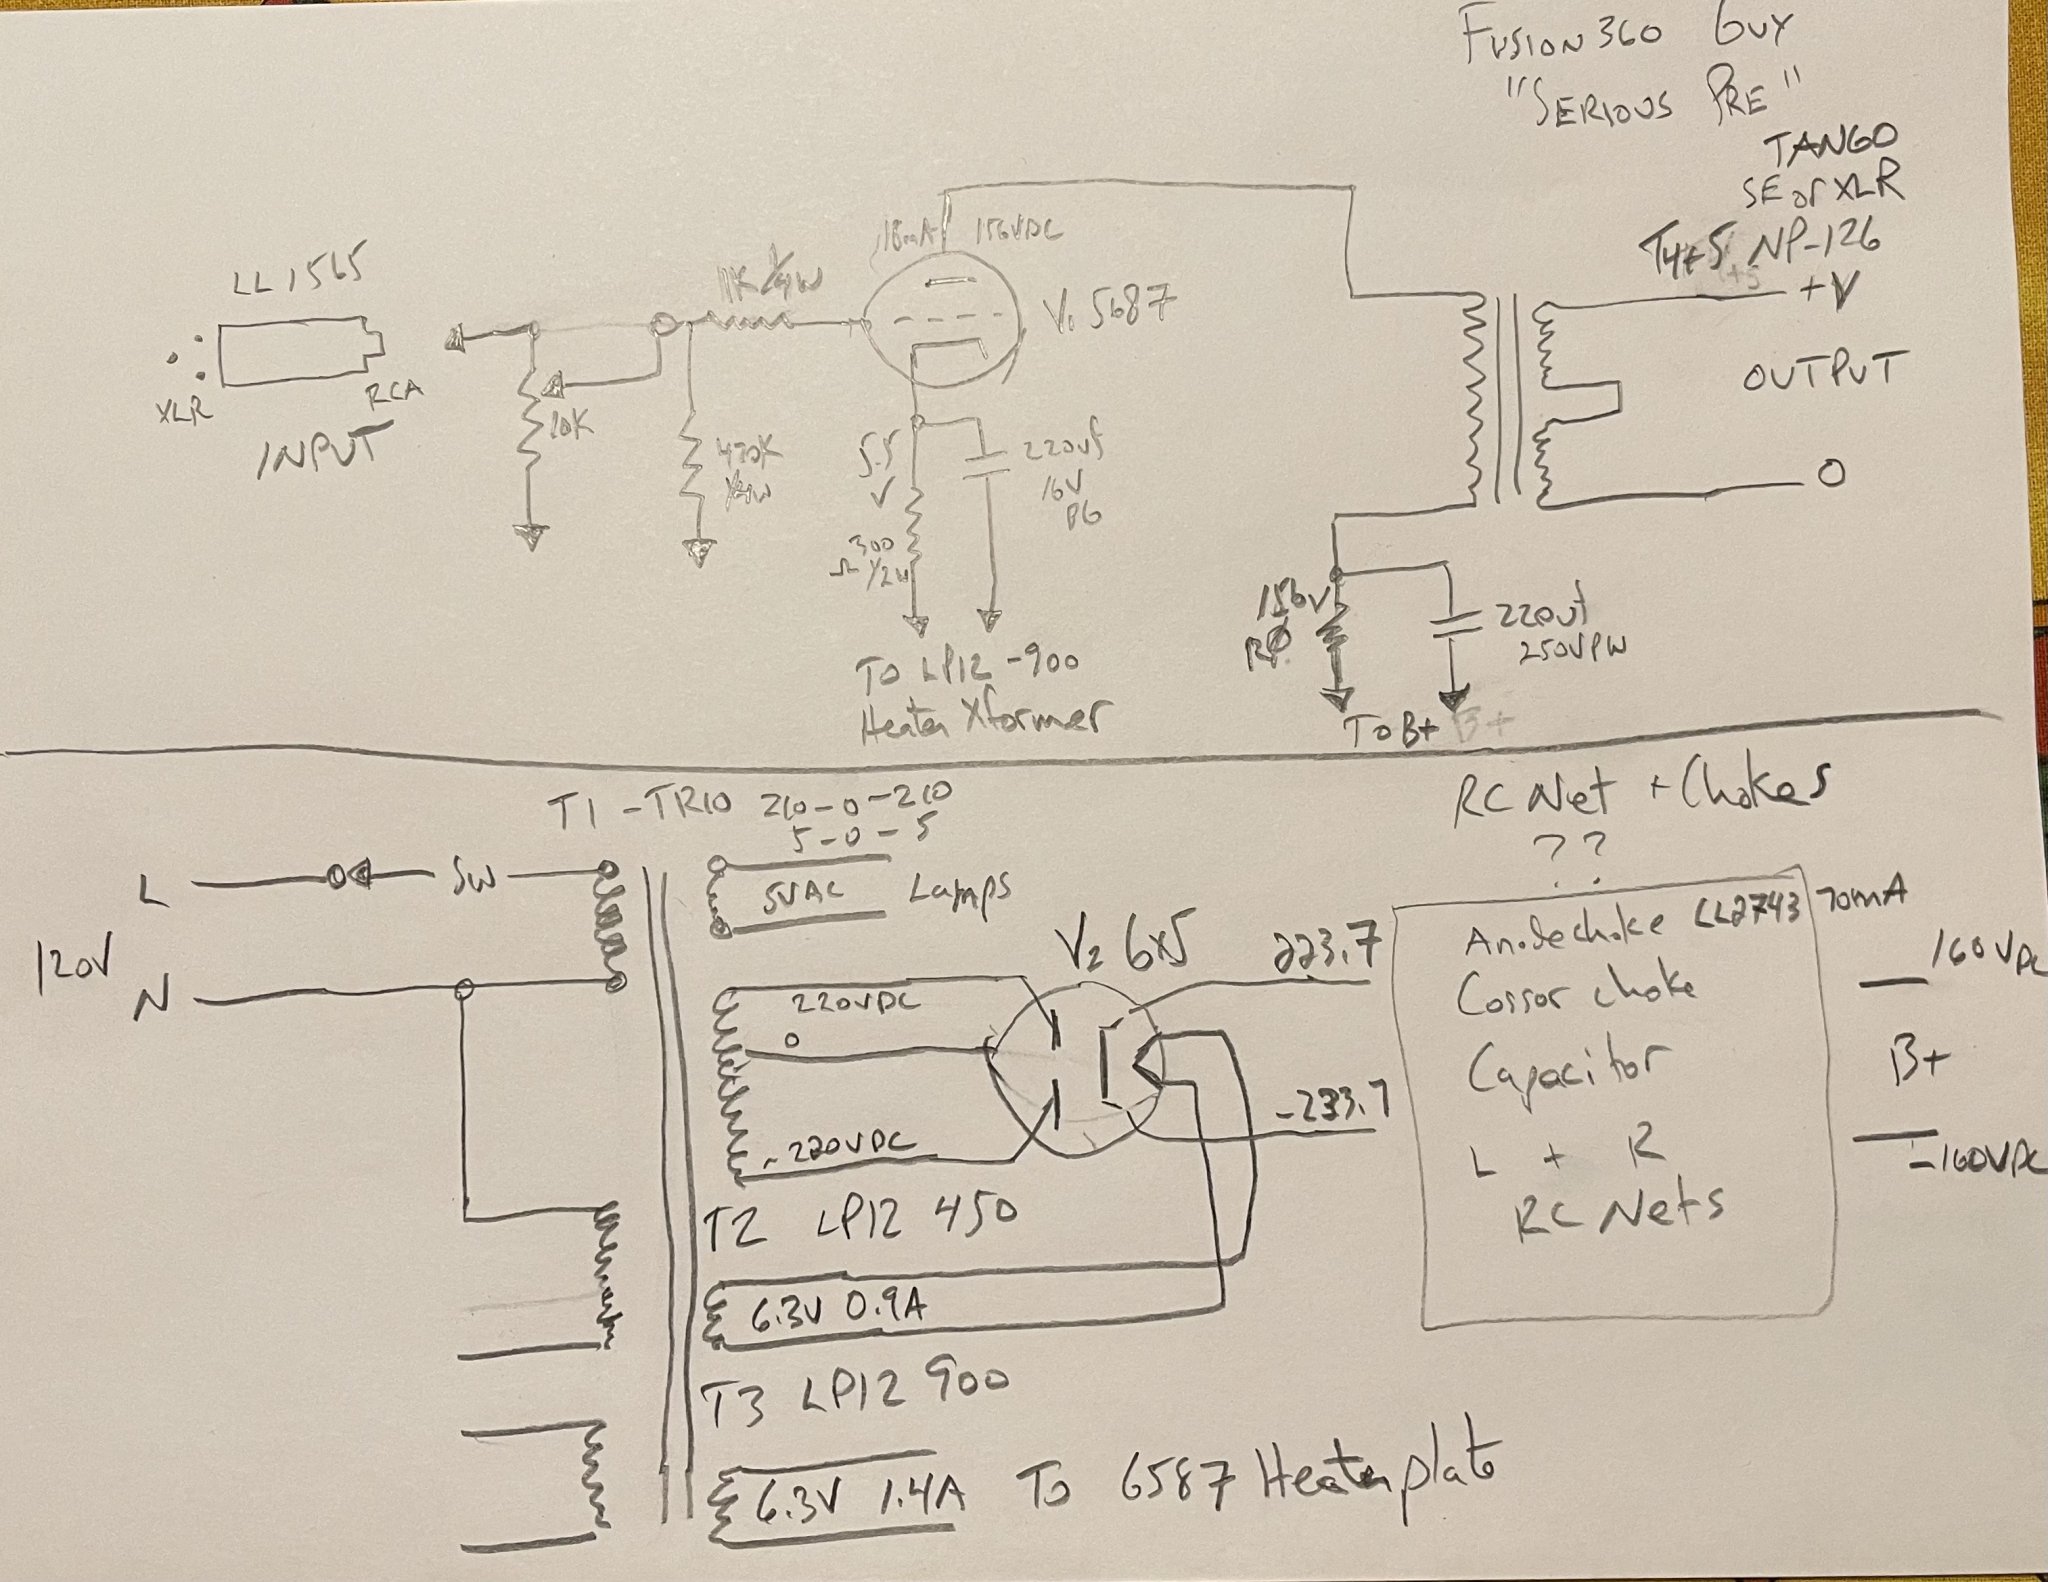 FUSION 360 GUY
"SERIOUS PRE"
TANGO
SE or XLR
NP-126
+V
OUTPUT
O
LL1565
XLR
RCA
INPUT
10K
1K 1/4W
470K
1/4W
18mA
156VDC
V1 5687
5.5
V
300
Ω 1/2W
220uf
16V
PG
To LP12 -900
Heater Xformer
156V
220uf
250VPW
To B+
B+
T1 - TRIO 210-0-210
5-0-5
L
SW
5VAC
Lamps
120V
N
V2 6x5
223.7
220VDC
0
-220VDC
-233.7
T2 LP12 450
6.3V 0.9A
T3 LP12 900
6.3V 1.4A To 6587 Heater plate
RC Net + Chokes
??
Anodechoke LL2743 70mA
Cossor choke
Capacitor
L + R
RC Nets
160VDC
B+
-160VDC